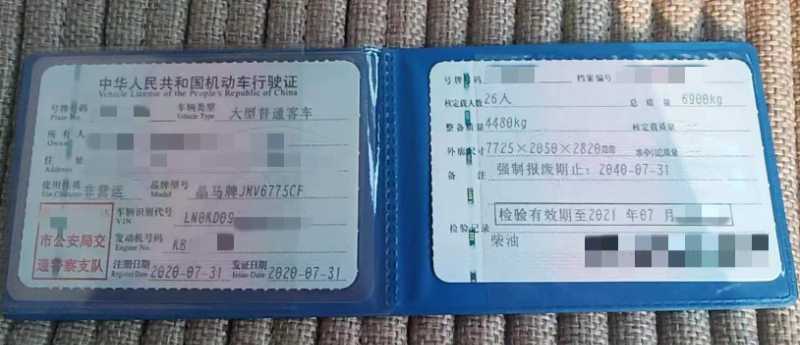 中华人民共和国机动车行驶证
Vehicle License of the People's Republic of China
号牌号码 车辆类型 大型普通客车
Plate No. Vehicle Type
所有人
住址
Address
使用性质 非营运 品牌型号 晶马牌JMV6775CF
Use Character Model
车辆识别代号 LN0KD09
VIN
市公安局交
通警察支队
发动机号码 K8
Engine No.
注册日期 2020-07-31 发证日期 2020-07-31
Register Date Issue Date
号牌号码 档案编号
核定载人数 26人 总质量 6900kg
整备质量 4480kg 核定载质量
外廓尺寸 7725×2050×2820
备注 强制报废期止:2040-07-31
检验有效期至2021年07月
检验记录
柴油